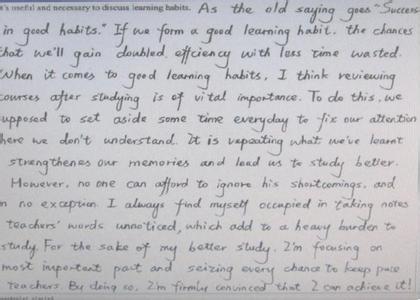 's useful and necessary to discuss learning habits. As the old saying goes "Success
in good habits." If we form a good learning habit, the chances
that we'll gain doubled efficiency with less time wasted.
When it comes to good learning habits, I think reviewing
courses after studying is of vital importance. To do this, we
upposed to set aside some time everyday to fix our attention
here we don't understand. It is repeating what we've learnt
strengthenes our memories and lead us to study better.
However, no one can afford to ignore his shortcomings, and
no exception. I always find myself occupied in taking notes
teachers' words unnoticed, which add to a heavy burden to
study. For the sake of my better study, I'm focusing on
most important part and seizing every chance to keep pace
teachers. By doing so, I'm firmly convinced that I can achieve it!